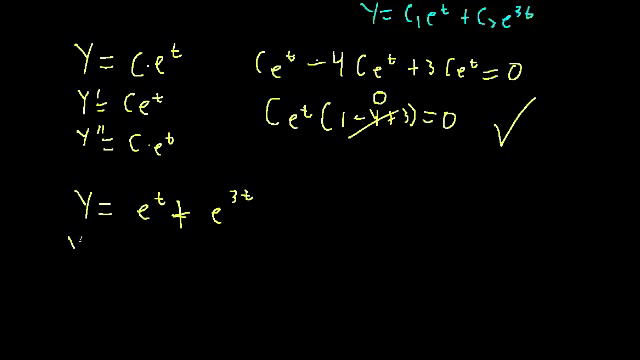 Y = C₁eᵗ + C₂e³ᵗ
Y = C·eᵗ
Y' = Ceᵗ
Y'' = C·eᵗ
Ceᵗ - 4Ceᵗ + 3Ceᵗ = 0
0
Ceᵗ(1 - 4 + 3) = 0 ✓
Y = eᵗ + e³ᵗ